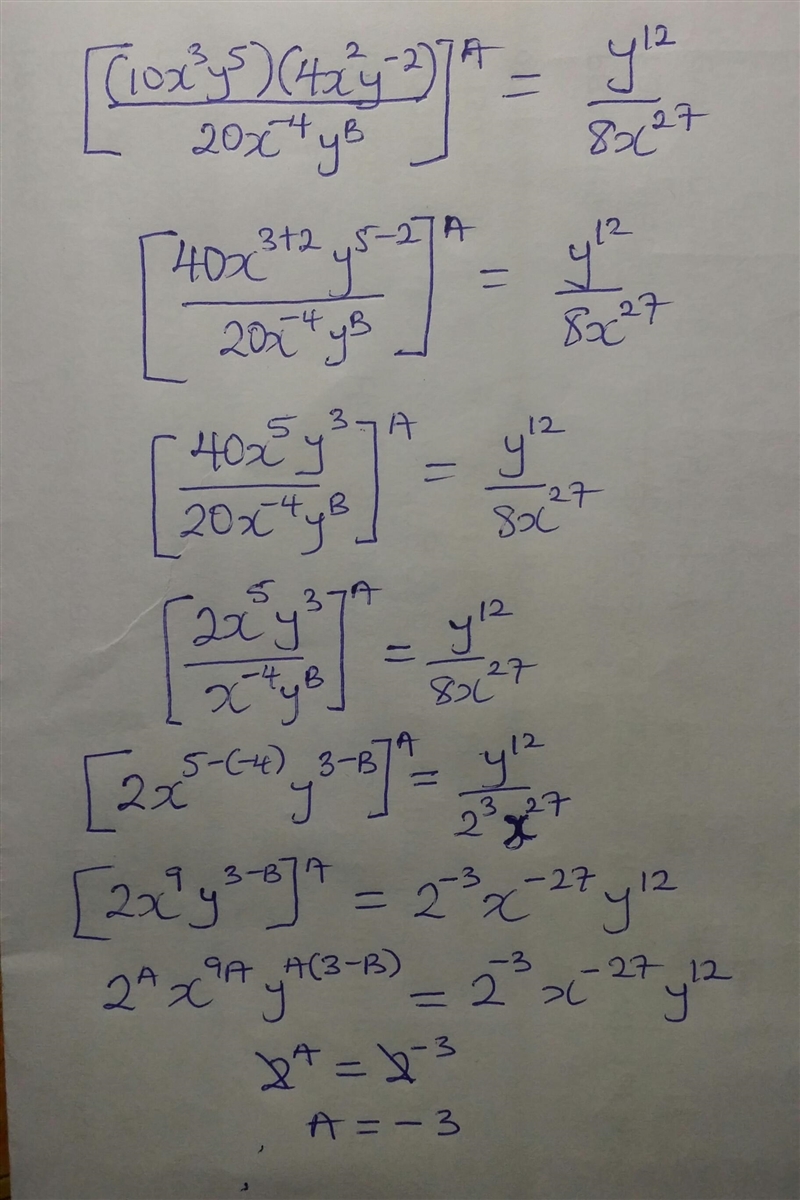 [(10x³y⁵)(4x²y⁻²)/20x⁻⁴yᴮ]ᴬ = y¹²/8x²⁷
[40x³⁺²y⁵⁻²/20x⁻⁴yᴮ]ᴬ = y¹²/8x²⁷
[40x⁵y³/20x⁻⁴yᴮ]ᴬ = y¹²/8x²⁷
[2x⁵y³/x⁻⁴yᴮ]ᴬ = y¹²/8x²⁷
[2x⁵⁻⁽⁻⁴⁾y³⁻ᴮ]ᴬ = y¹²/2³x²⁷
[2x⁹y³⁻ᴮ]ᴬ = 2⁻³x⁻²⁷y¹²
2ᴬx⁹ᴬyᴬ⁽³⁻ᴮ⁾ = 2⁻³x⁻²⁷y¹²
2ᴬ = 2⁻³
A = -3